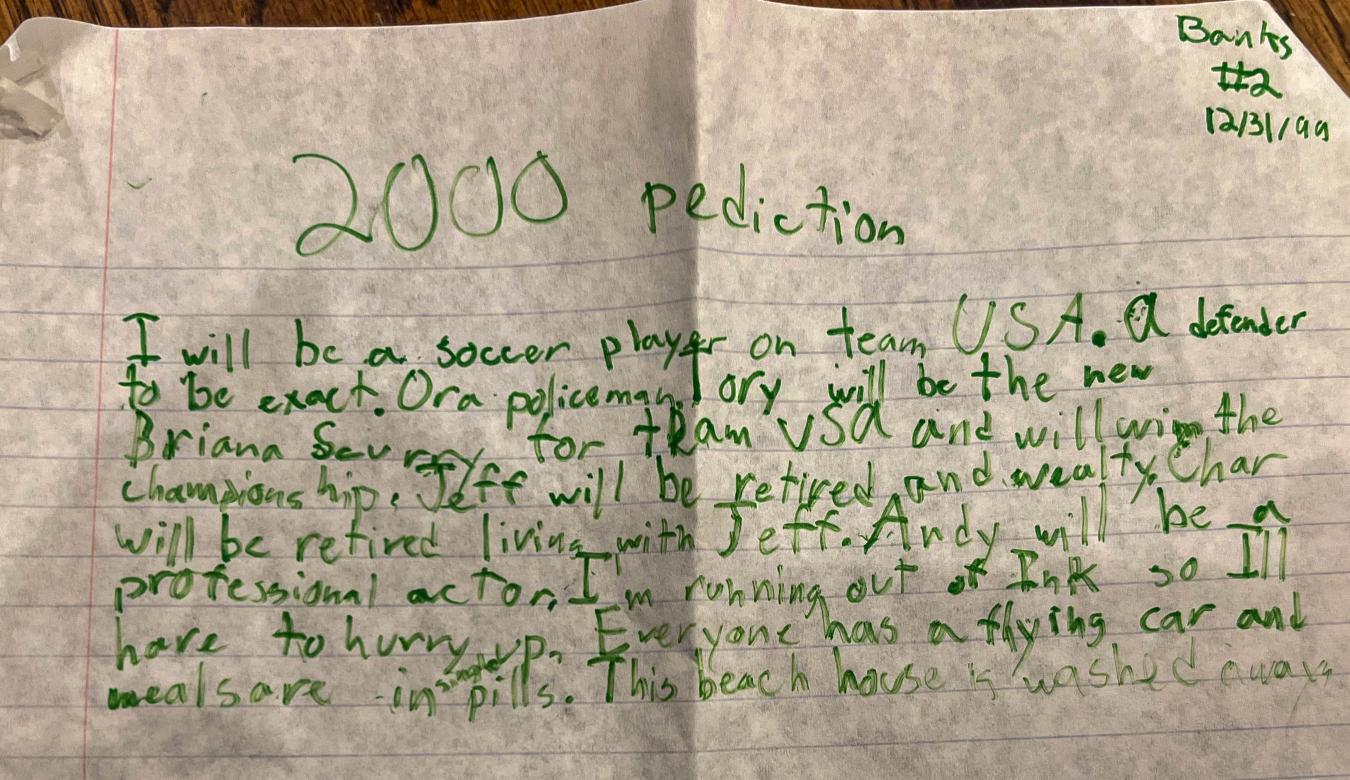 Banks
#2
12/31/99
2000 pediction
I will be a soccer player on team USA. A defender
to be exact. Or a policeman. Tory will be the new
Briana Scurry for team USA and will win the
championship. Jeff will be retired and wealty. Char
will be retired living with Jeff. Andy will be a
professional actor, I'm running out of Ink so I'll
have to hurry up. Everyone has a flying car and
meals are in single pills. This beach house is washed away